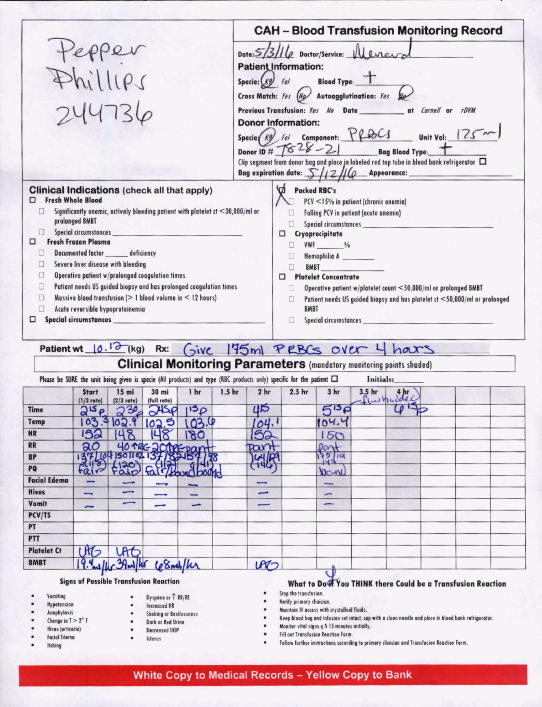 Pepper
Phillips
244736
CAH – Blood Transfusion Monitoring Record
Date: 5/3/16 Doctor/Service:
Patient Information:
Specie: K9 Fel Blood Type: +
Cross Match: Yes No Autoagglutination: Yes No
Previous Transfusion: Yes No Date ____ at Cornell or rDVM
Donor Information:
Specie: K9 Fel Component: PRBCs Unit Vol: 175ml
Donor ID # 7828-21 Bag Blood Type: +
Clip segment from donor bag and place in labeled red top tube in blood bank refrigerator ☐
Bag expiration date: 5/12/16 Appearance:
Clinical Indications (check all that apply)
☐ Fresh Whole Blood
☐ Significantly anemic, actively bleeding patient with platelet ct <30,000/ml or
prolonged BMBT
☐ Special circumstances
☐ Fresh Frozen Plasma
☐ Documented factor ____ deficiency
☐ Severe liver disease with bleeding
☐ Operative patient w/prolonged coagulation times
☐ Patient needs US guided biopsy and has prolonged coagulation times
☐ Massive blood transfusion (> 1 blood volume in < 12 hours)
☐ Acute reversible hypoproteinemia
☐ Special circumstances
Packed RBC's
☐ PCV <15% in patient (chronic anemia)
☐ Falling PCV in patient (acute anemia)
☐ Special circumstances
☐ Cryoprecipitate
☐ VWF ____%
☐ Hemophilia A
☐ BMBT
☐ Platelet Concentrate
☐ Operative patient w/platelet count <50,000/ml or prolonged BMBT
☐ Patient needs US guided biopsy and has platelet ct <50,000/ml or prolonged
BMBT
☐ Special circumstances
Patient wt 10.12 (kg) Rx: Give 175ml PRBCs over 4 hours
Clinical Monitoring Parameters (mandatory monitoring points shaded)
Please be SURE the unit being given is specie (All products) and type (RBC products only) specific for the patient ☐ Initials:
Start 15 mi 30 mi 1 hr 1.5 hr 2 hr 2.5 hr 3 hr 3.5 hr 4 hr
(1/3 rate) (2/3 rate) (full rate)
Time 215p 230p 245p 15p 415 515p 615p
Temp 103.5 102.9 102.5 103.6 104.1 104.4
HR 152 148 148 180 152 150
RR 20 40 20 pant pant pant
BP 137/104 150/102 137/82
PQ fair fair fair/bound bound bound
Facial Edema – – – – – –
Hives – – – – – –
Vomit – – – – – –
PCV/TS
PT
PTT
Platelet Ct
BMBT 19.4ml/hr 39ml/hr 68ml/hr
Signs of Possible Transfusion Reaction
Vomiting
Hypotension
Anaphylaxis
Change in T > 2° F
Hives (urticaria)
Facial Edema
Itching
Dyspnea or ↑ RR/RE
Increased HR
Shaking or Restlessness
Dark or Red Urine
Decreased UOP
Icterus
What to Do if You THINK there Could be a Transfusion Reaction
Stop the transfusion.
Notify primary clinician.
Maintain IV access with crystalloid fluids.
Keep blood bag and infusion set intact, cap with a clean needle and place in blood bank refrigerator.
Monitor vital signs q 5-15 minutes initially.
Fill out Transfusion Reaction Form.
Follow further instructions according to primary clinician and Transfusion Reaction Form.
White Copy to Medical Records – Yellow Copy to Bank